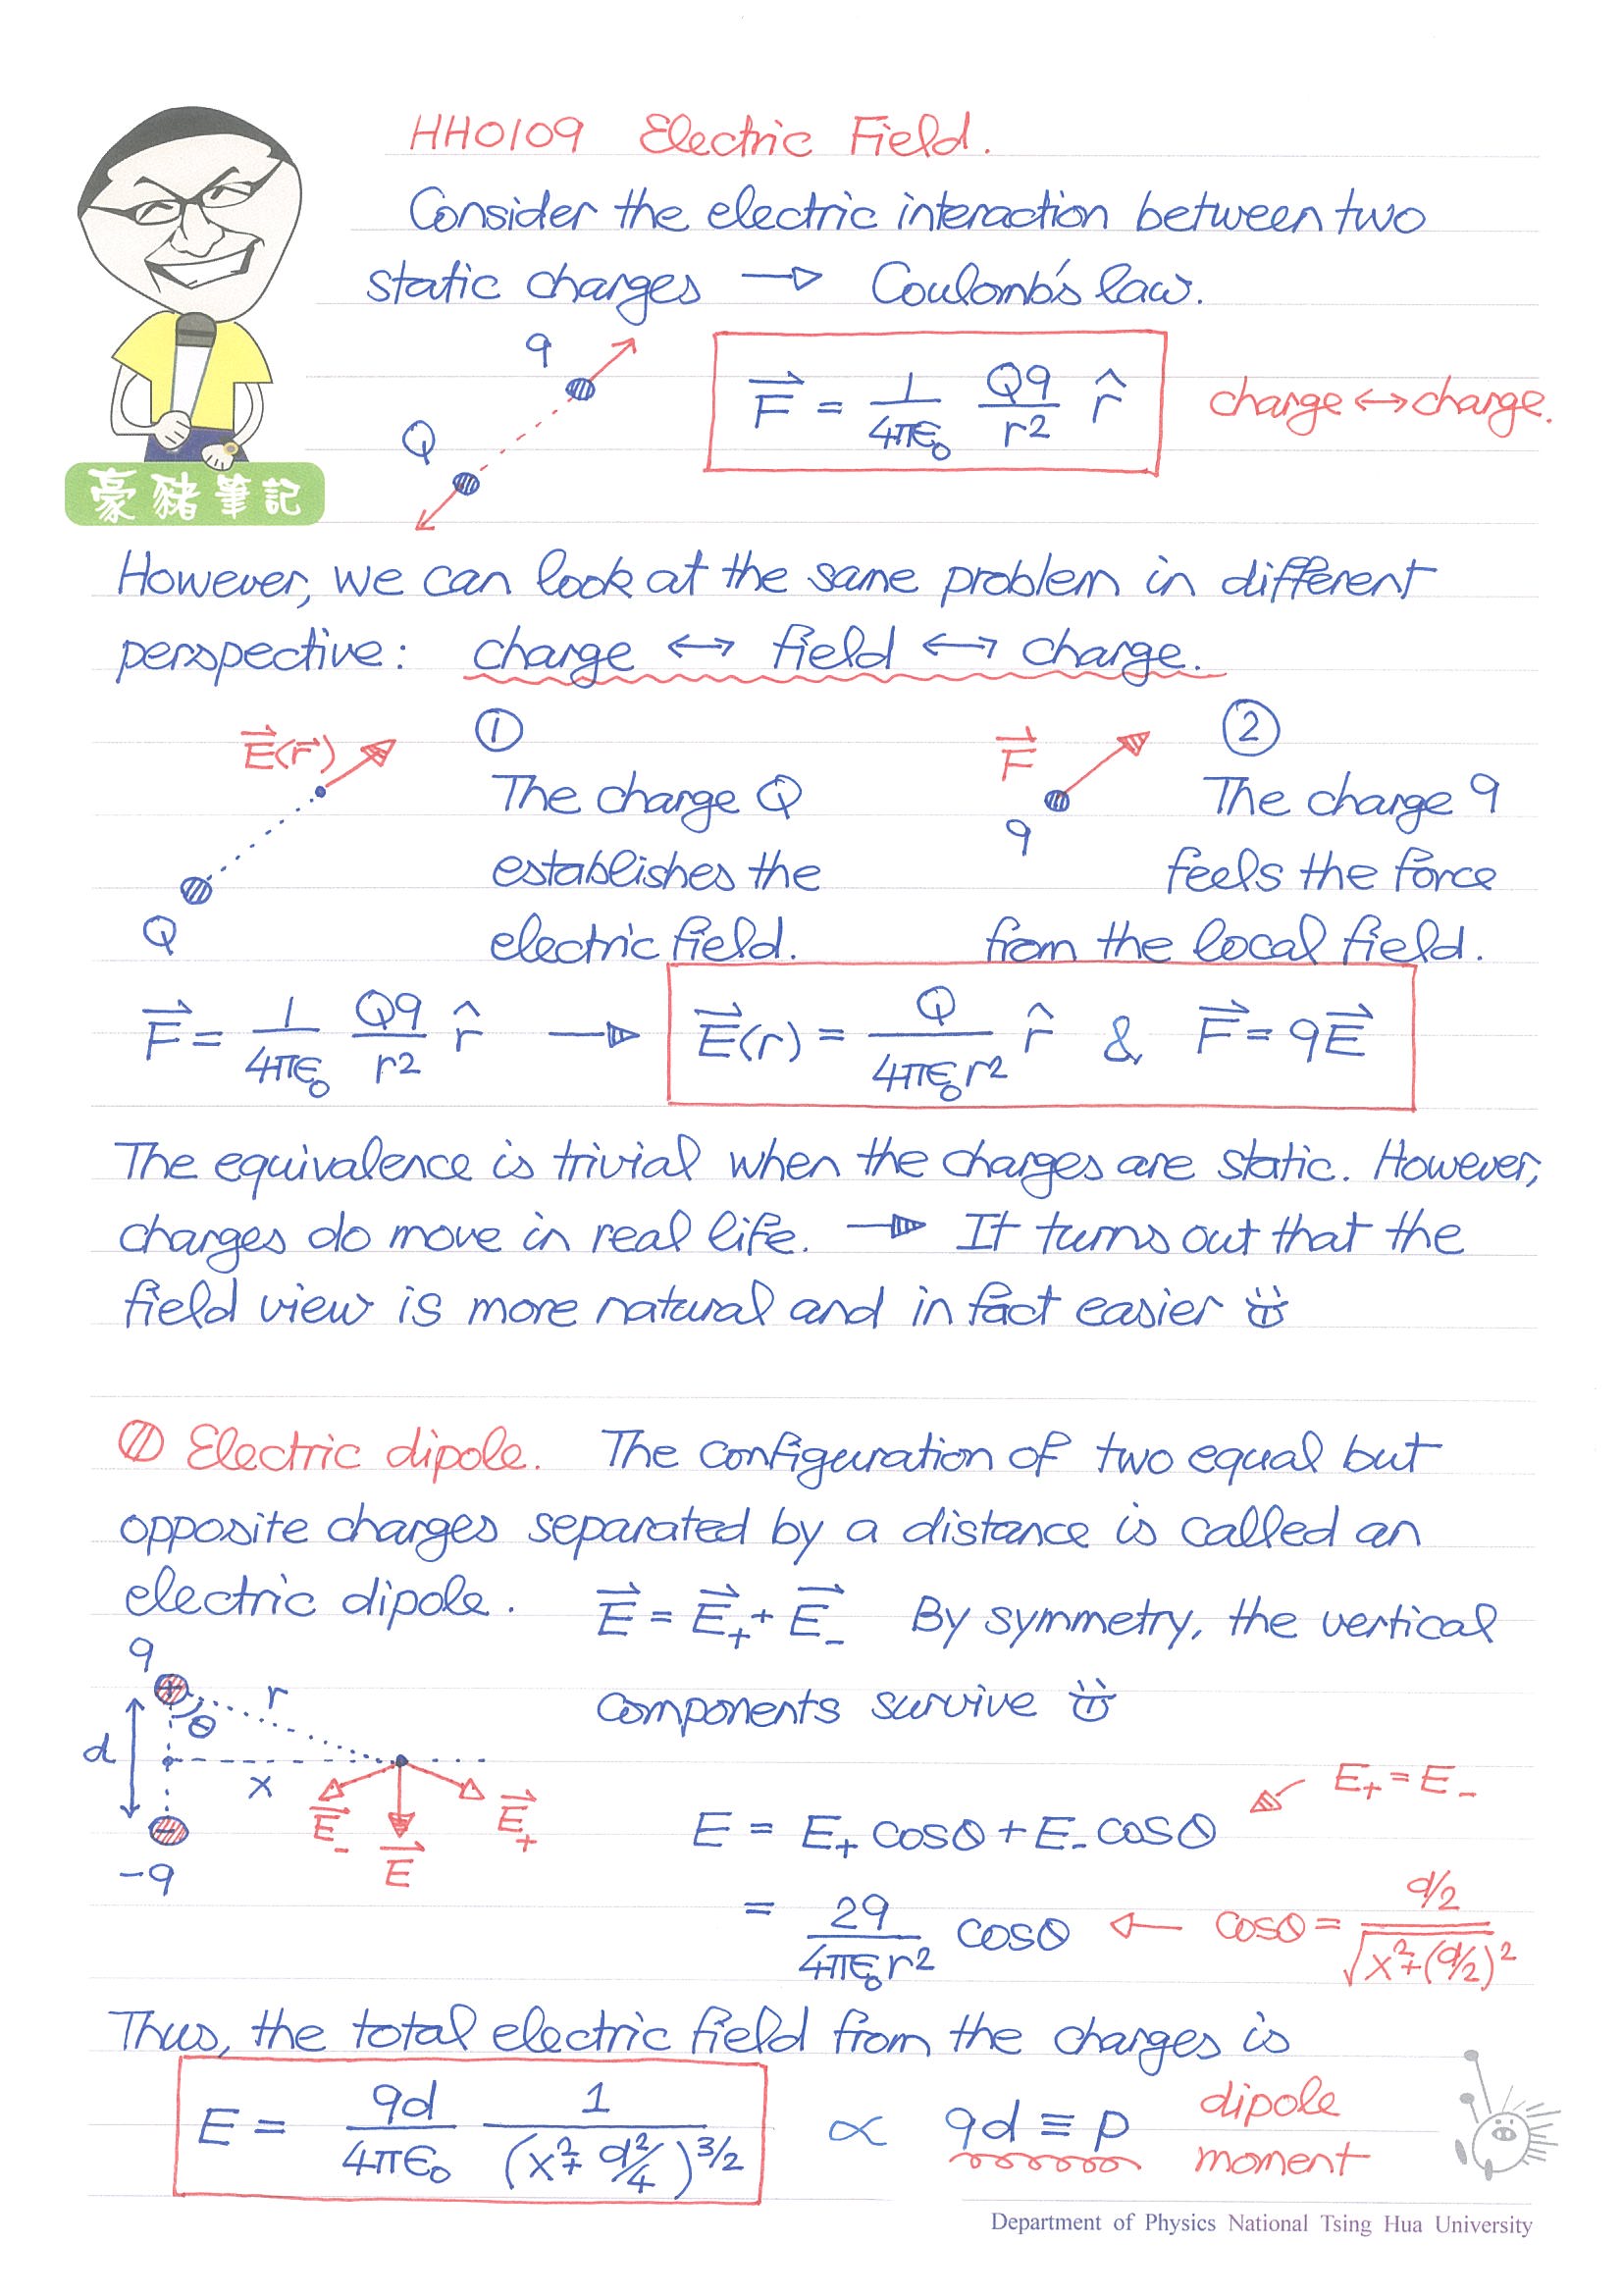 HH0109 Electric Field.
Consider the electric interaction between two
static charges → Coulomb's law.
q
Q
F⃗ = 1/4πϵ₀ Qq/r² r̂
charge ↔ charge.
豪豬筆記
However, we can look at the same problem in different
perspective: charge ↔ field ↔ charge.
E⃗(r⃗)
Q
①
The charge Q
establishes the
electric field.
F⃗
q
②
The charge q
feels the force
from the local field.
F⃗ = 1/4πϵ₀ Qq/r² r̂ → E⃗(r) = Q/4πϵ₀r² r̂ & F⃗ = qE⃗
The equivalence is trivial when the charges are static. However,
charges do move in real life. → It turns out that the
field view is more natural and in fact easier
Electric dipole. The configuration of two equal but
opposite charges separated by a distance is called an
electric dipole. E⃗ = E⃗₊ + E⃗₋ By symmetry, the vertical
components survive
q
+
r
θ
d
x
−
-q
E⃗₋
E⃗
E⃗₊
E = E₊ cosθ + E₋ cosθ
E₊ = E₋
= 2q/4πϵ₀r² cosθ ← cosθ = d/2/√x²+(d/2)²
Thus, the total electric field from the charges is
E = qd/4πϵ₀ 1/(x²+d²/4)^3/2 ∝ qd ≡ p dipole
moment
Department of Physics National Tsing Hua University